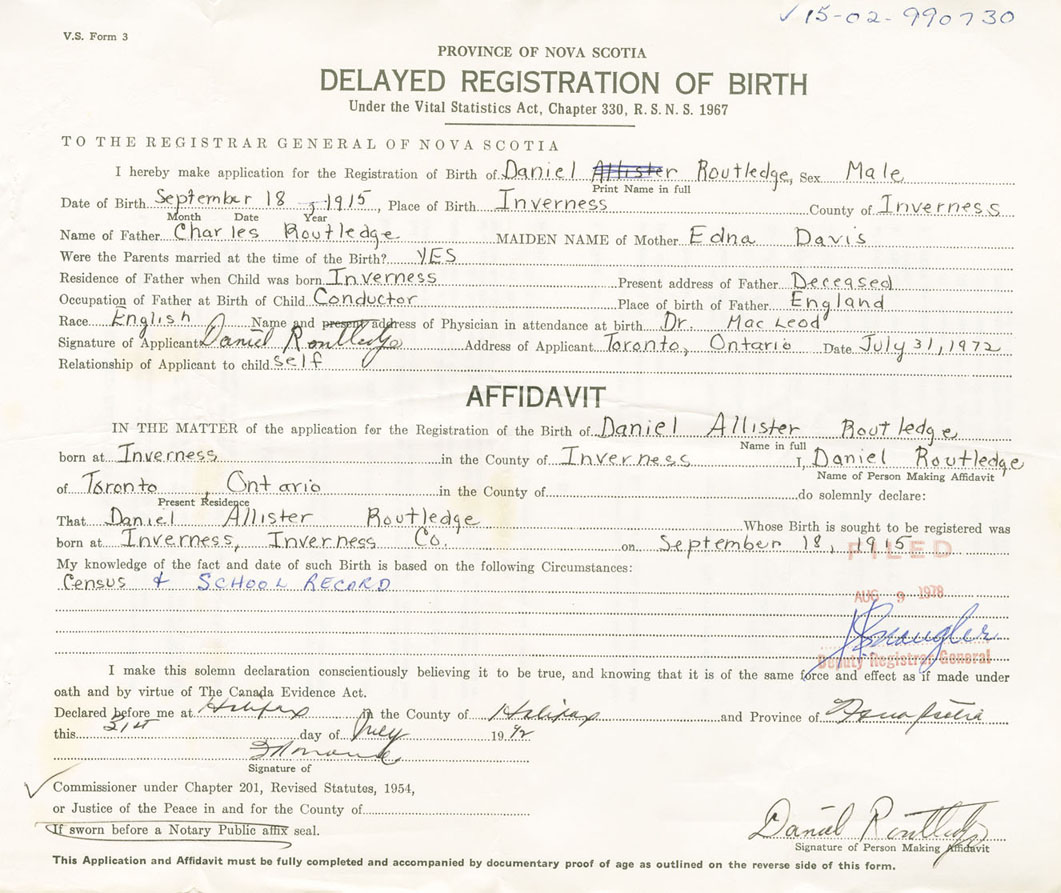 ✓15-02-990730
V.S. Form 3
PROVINCE OF NOVA SCOTIA
DELAYED REGISTRATION OF BIRTH
Under the Vital Statistics Act, Chapter 330, R.S.N.S. 1967
TO THE REGISTRAR GENERAL OF NOVA SCOTIA
I hereby make application for the Registration of Birth of Daniel Allister Routledge, Sex Male
Print Name in full
Date of Birth September 18, 1915, Place of Birth Inverness County of Inverness
Month Date Year
Name of Father Charles Routledge MAIDEN NAME of Mother Edna Davis
Were the Parents married at the time of the Birth? YES
Residence of Father when Child was born Inverness Present address of Father Deceased
Occupation of Father at Birth of Child Conductor Place of birth of Father England
Race English Name and present address of Physician in attendance at birth Dr. Mac Leod
Signature of Applicant Daniel Routledge Address of Applicant Toronto, Ontario Date July 31, 1972
Relationship of Applicant to child Self
AFFIDAVIT
IN THE MATTER of the application for the Registration of the Birth of Daniel Allister Routledge
Name in full
born at Inverness in the County of Inverness I, Daniel Routledge
Name of Person Making Affidavit
of Toronto, Ontario in the County of do solemnly declare:
Present Residence
That Daniel Allister Routledge Whose Birth is sought to be registered was
born at Inverness, Inverness Co. on September 18, 1915
FILED
My knowledge of the fact and date of such Birth is based on the following Circumstances:
Census & SCHOOL RECORD
AUG 9 1978
Deputy Registrar General
I make this solemn declaration conscientiously believing it to be true, and knowing that it is of the same force and effect as if made under
oath and by virtue of The Canada Evidence Act.
Declared before me at Halifax in the County of Halifax and Province of Nova Scotia
this 31st day of July 19
Signature of
✓ Commissioner under Chapter 201, Revised Statutes, 1954,
or Justice of the Peace in and for the County of
If sworn before a Notary Public affix seal.
Daniel Routledge
Signature of Person Making Affidavit
This Application and Affidavit must be fully completed and accompanied by documentary proof of age as outlined on the reverse side of this form.